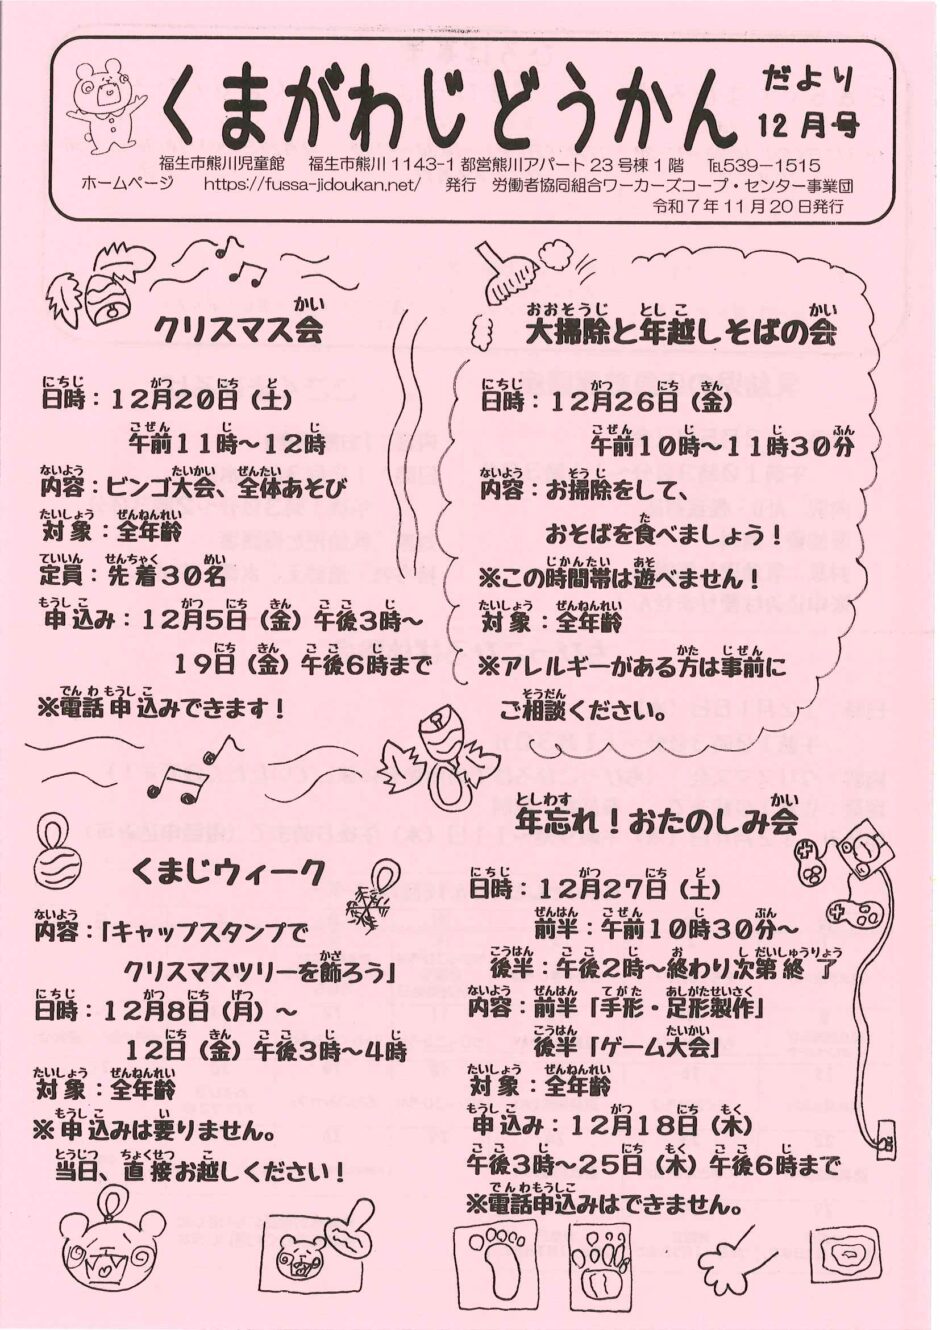 くまがわじどうかん だより
12月号
福生市熊川児童館 福生市熊川1143-1 都営熊川アパート23号棟1階 ℡539ー1515
ホームページ https://fussa-jidoukan.net/ 発行 労働者協同組合ワーカーズコープ・センター事業団
令和7年11月20日発行
クリスマス会
日時：12月20日（土）
午前11時～12時
内容：ビンゴ大会、全体あそび
対象：全年齢
定員：先着30名
申込み：12月5日（金）午後3時～
19日（金）午後6時まで
※電話申込みできます！
大掃除と年越しそばの会
日時：12月26日（金）
午前10時～11時30分
内容：お掃除をして、
おそばを食べましょう！
※この時間帯は遊べません！
対象：全年齢
※アレルギーがある方は事前に
ご相談ください。
くまじウィーク
内容：「キャップスタンプで
クリスマスツリーを飾ろう」
日時：12月8日（月）～
12日（金）午後3時～4時
対象：全年齢
※申込みは要りません。
当日、直接お越しください！
年忘れ！おたのしみ会
日時：12月27日（土）
前半：午前10時30分～
後半：午後2時～終わり次第終了
内容：前半「手形・足形製作」
後半「ゲーム大会」
対象：全年齢
申込み：12月18日（木）
午後3時～25日（木）午後6時まで
※電話申込みはできません。